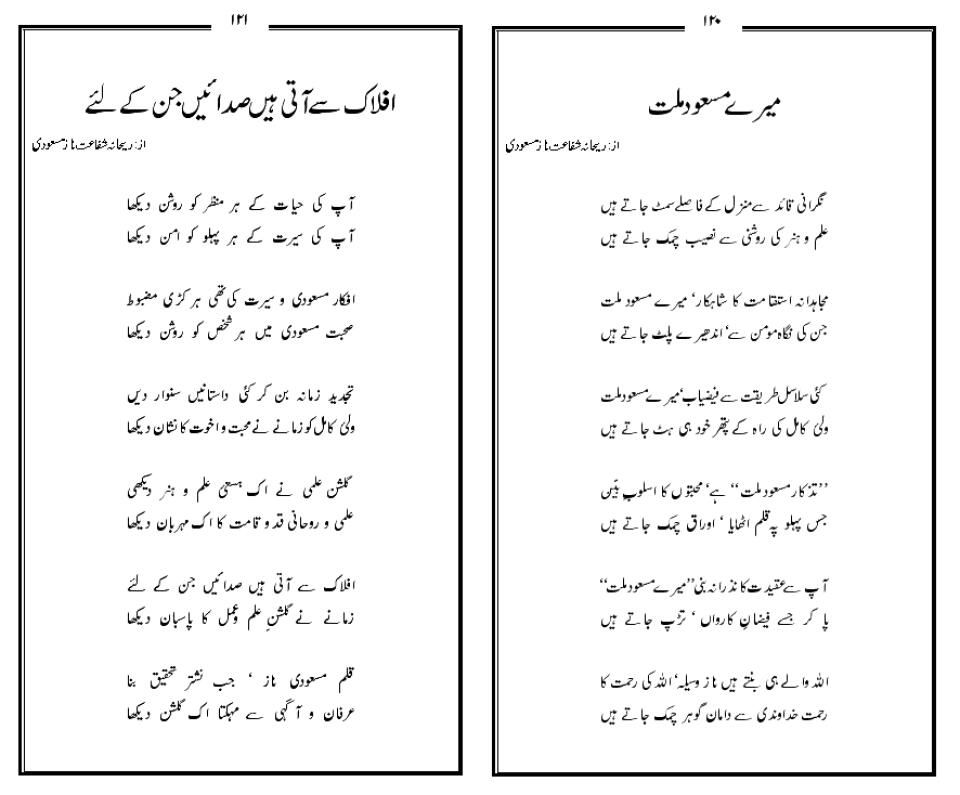 ۱۲۰
میرے مسعود ملت
از: ریحانہ شفاعت ناز مسعودی
نگرانی قائد سے منزل کے فاصلے سمٹ جاتے ہیں
علم و ہنر کی روشنی سے نصیب چمک جاتے ہیں
مجاہدانہ استقامت کا شاہکار، میرے مسعود ملت
جن کی نگاہ مومن سے، اندھیرے پلٹ جاتے ہیں
کئی سلاسل طریقت سے فیضیاب، میرے مسعود ملت
ولیٔ کامل کی راہ کے پتھر خود ہی ہٹ جاتے ہیں
’’تذکار مسعود ملت‘‘ ہے، محبتوں کا اسلوبِ
جس پہلو پہ قلم اٹھایا ، اوراق چمک جاتے ہیں
آپ سے عقیدت کا نذرانہ بنی ’’میرے مسعود ملت‘‘
پا کر جسے فیضانِ کارواں ، تڑپ جاتے ہیں
اللہ والے ہی بنتے ہیں ناز وسیلہ، اللہ کی رحمت کا
رحمت خداوندی سے دامان گوہر چمک جاتے ہیں
۱۲۱
افلاک سے آتی ہیں صدائیں جن کے لئے
از: ریحانہ شفاعت ناز مسعودی
آپ کی حیات کے ہر منظر کو روشن دیکھا
آپ کی سیرت کے ہر پہلو کو امن دیکھا
افکار مسعودی و سیرت کی تھی ہر کڑی مضبوط
صحبت مسعودی میں ہر شخص کو روشن دیکھا
تجدید زمانہ بن کر کئی داستانیں سنوار دیں
ولیٔ کامل کو زمانے نے محبت و اخوت کا نشان دیکھا
گلشن علمی نے اک ہستیٔ علم و ہنر دیکھی
علمی و روحانی قد و قامت کا اک مہربان دیکھا
افلاک سے آتی ہیں صدائیں جن کے لئے
زمانے نے گلشنِ علم و عمل کا پاسبان دیکھا
قلم مسعودی ناز ، جب نشتر تحقیق بنا
عرفان و آگہی سے مہکتا اک گلشن دیکھا